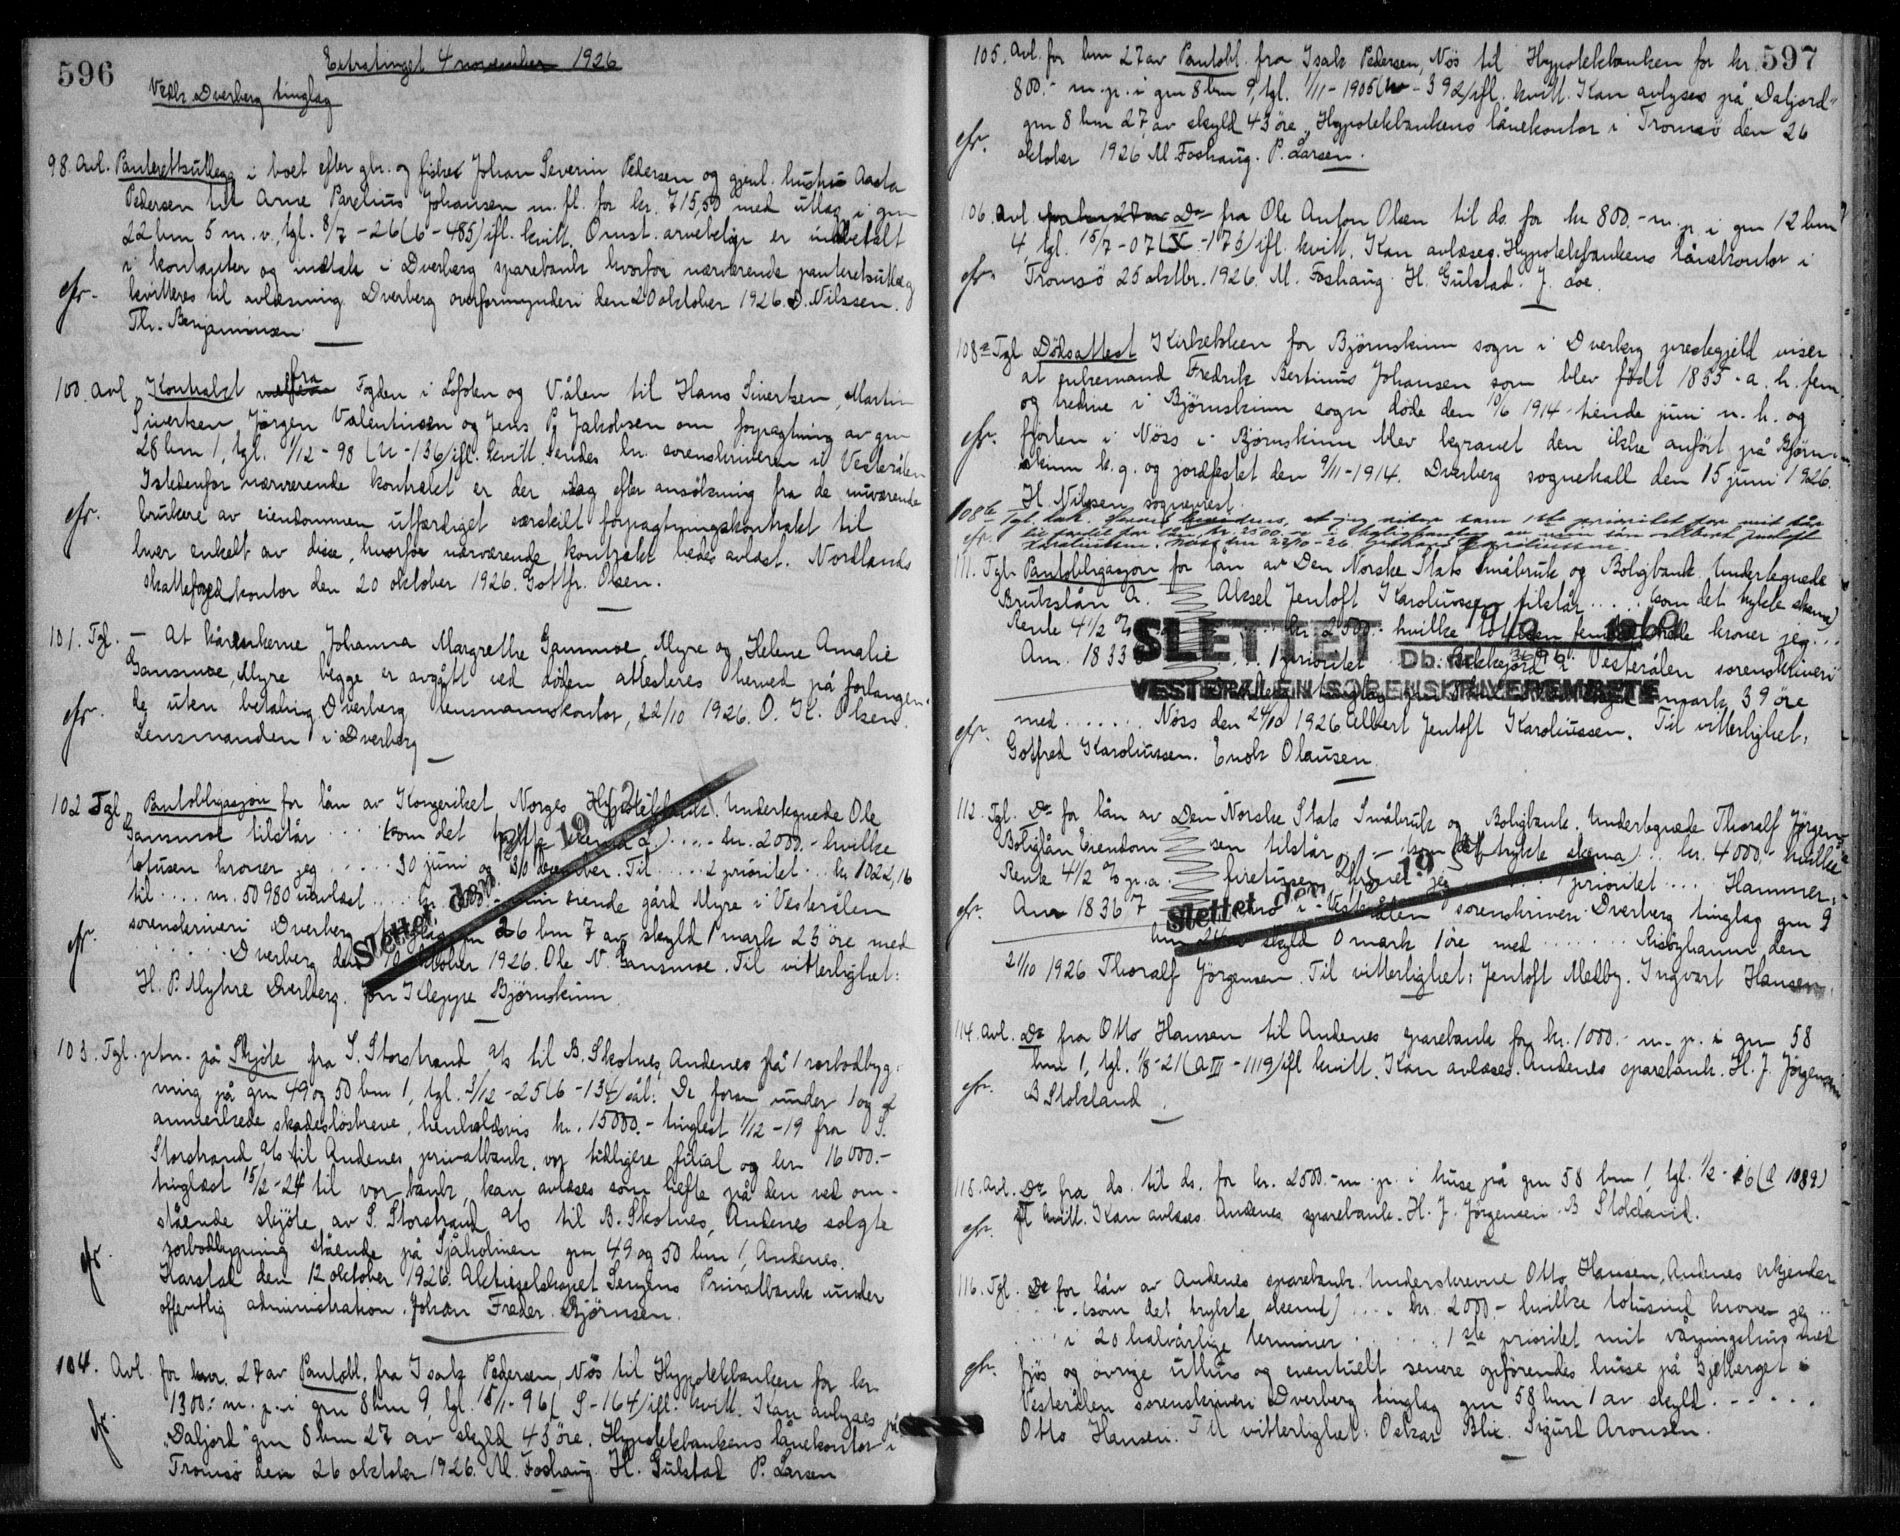 596
Extratinget 4 november 1926
Vedk. Dverberg tinglag
98. Avl. Panterettsutlegg i boet efter gbr. og fisker Johan Severin Pedersen og gjenl. hustru Aasta
Pedersen til Arne Parelius Johansen m. fl. for kr. 715,50 med utlæg i gnr
22 bnr 5 m. v., tgl. 8/7 - 26 (6 - 485) ifl. kvitt. Omst. arvebeløp er indbetalt
i kontanter og indtak i Dverberg sparebank hvorfor nærværende panteretsutlæg
kvitteres til avlæsning. Dverberg overformynderi den 20 oktober 1926. D. Nilssen.
Th. Benjaminsen.
100. Avl. Kontrakt fra Fogden i Lofoten og V.ålen til Hans Sivertsen, Martin
Sivertsen, Jörgen Valentinsen og Jens P. Jakobsen om forpagtning av gnr
28 bnr 1, tgl. 1/12 - 98 (U - 136) ifl. kvitt. Sendes hr. sorenskriveren i Vesterålen
Istedenfor nærværende kontrakt er der idag efter ansökning fra de nuværende
brukere av eiendommen utfærdiget særskilt forpagtningskontrakt til
hver enkelt av disse, hvorfor nærværende kontrakt bedes avlæst. Nordlands
skattefogedkontor den 20 oktober 1926. Gottfr. Olsen.
101. Tgl. - At kårenkerne Johanna Margrethe Gansmoe, Myre og Helene Amalie
Gansmoe, Myre begge er avgått ved döden attesteres herved på forlangen-
de uten betaling. Dverberg lensmannskontor, 22/10 1926. O. K. Olsen.
Lensmanden i Dverberg
102 Tgl. Pantobligasjon for lån av Kongeriket Norges Hypotekbank. Undertegnede Ole
Gansmoe tilstår .... (som det trykte skema) ..... kr. 2000.- hvilke
totusen kroner jeg ..... 30 juni og 31 december. Til ..... 2 prioritet ... kr. 1022,16
til .... nr. 50980 uavlæst .... min eiende gård Myre i Vesterålen
sorenskriveri Dverberg tinglag gnr 26 bnr 7 av skyld 1 mark 23 öre med
..... Dverberg den oktober 1926. Ole N. Gansmoe. Til vitterlighet:
H. P. Myhre Dverberg. Jon Kleppe Björnskinn.
Slettet den 19
103. Tgl. ptn. på Skjöte fra S. Storstrand A/s til B. Skotnes, Andenes på 1 rorbodbyg-
ning på gnr 49 og 50 bnr 1, tgl. 3/12 - 25 (6 - 134) sål: De foran under 1 og 2
anmerkede skadeslösbreve, henholdsvis kr. 15000.- tinglest 1/12 - 19 fra S.
Storstrand A/s til Andenes privatbank, vor tidligere filial og kr 16000.-
tinglæst 15/2 - 24 til vor bank, kan avlæses som hefte på den ved om-
stående skjöte av S. Storstrand A/s til B. Skotnes, Andenes solgte
rorbodbygning stående på Sjåholmen gnr 49 og 50 bnr 1, Andenes.
Harstad den 12 oktober 1926. Aktieselskapet Senjens Privatbank under
offentlig administration. Johan Fredr. Björnsen.
104. Avl. for bnr. 27 av Pantobl. fra Isak Pedersen, Nös til Hypotekbanken for kr.
1300.- m. p. i gnr 8 bnr 9, tgl. 15/11 - 96 (S - 164) ifl. kvitt. Kan avlyses på
"Daljord" gnr 8 bnr 27 av skyld 43 öre. Hypotekbankens lånekontor i
Tromsö den 26 oktober 1926. M. Foshaug. H. Gulstad P. Larsen
597
105. Avl. for bnr 27 av Pantobl. fra Isak Pedersen, Nös til Hypotekbanken for kr.
800.- m. p. i gnr 8 bnr 9, tgl. 1/11 - 1905 - 392) ifl. kvitt. Kan avlyses på "Daljord"
gnr 8 bnr 27 av skyld 43 öre. Hypotekbankens lånekontor i Tromsö den 26
oktober 1926 M Foshaug. P. Larsen.
106. Avl. for bnr 27 av Do fra Ole Anton Olsen til ds. for kr 800.- m. p. i gnr 12 bnr
4, tgl. 15/7 - 07 (X - 173) ifl. kvitt. Kan avlæses. Hypotekbankens lånekontor i
Tromsö 25 oktbr. 1926. M. Foshaug. H. Gulstad.
108a Tgl. Dödsattest Kirkeboken for Björnskinn sogn i Dverberg prestegjeld viser
at enkemand Fredrik Bertinus Johansen som blev födt 1835 - a. h. fem
og tredive i Björnskinn sogn döde den 10/6 1914 - tiende juni n. h. og
fjorten i Nöss i Björnskinn blev begravet den ikke anfört på Björn-
skinn k. g. og jordfestet den 9/11 - 1914. Dverberg sognekall den 15 juni 1926.
H. Nilssen sogneprest.
108b
111. Tgl. Pantobligasjon for lån av Den Norske Stats Småbruk og Boligbank. Undertegnede
Brukslån A. Aksel Jentoft Karoliussen tilstår ..... (som det trykte skema)
Rente 4 1/2 % kr. 2500.- hvilke totusen femhundrede kroner jeg ...
An. 1833 1 prioritet Bekkejord i Vesterålen sorenskriveri
mark 39 öre
med ....... Nöss den 24/10 1926 Albert Jentoft Karoliussen. Til vitterlighet:
Gotfred Karoliussen. Enok Olausen.
SLETTET
Db.nr. 3696
VESTERÅLEN SORENSKRIVEREMBETE
112. Tgl. Do for lån av Den Norske Stats Småbruk og Boligbank. Undertegnede Thoralf Jörgen-
Boliglån Eiendom sen tilstår ... (som det trykte skema) ... kr. 4000.- hvilke
Rente 4 1/2 % p. a. firetusen kroner jeg ..... 1 prioritet .... Hammer,
An 18367 i Vesterålen sorenskriveri Dverberg tinglag gnr 9
bnr 24 av skyld 0 mark 1 öre med ........ Risöyhamn den
21/10 1926. Thoralf Jörgensen. Til vitterlighet: Jentoft Melby. Ingvart Hansen.
Slettet den 19
114. Avl. Do fra Otto Hansen til Andenes sparebank for kr. 1000.- m. p. i gnr 58
bnr 1, tgl. 1/8 - 21 (A III - 1119) ifl kvitt. Kan avlæses. Andenes sparebank. H. J. Jörgensen
B Stokland.
115. Avl. Do fra ds. til ds. for kr. 2500.- m. p. i huse på gnr 58 bnr 1, tgl. 1/2 - 16 (A 1089)
ifl kvitt. Kan avlæses. Andenes sparebank. H. J. Jörgensen. B Stokland.
116. Tgl. Do for lån av Andenes sparebank. Underskrevne Otto Hansen, Andenes erkjender
.... (som det trykte skema) .... kr. 2000.- hvilke totusind kroner jeg ..
.... i 20 halvårlige terminer ...... 1ste prioritet mit våningshus med
fjös og övrige uthus og eventuelt senere opförendes huse på Gjelberget i
Vesterålen sorenskriveri Dverberg tinglag gnr 58 bnr 1 av skyld ......
Otto Hansen. Til vitterlighet: Oskar Blix. Sigurd Aronsen.